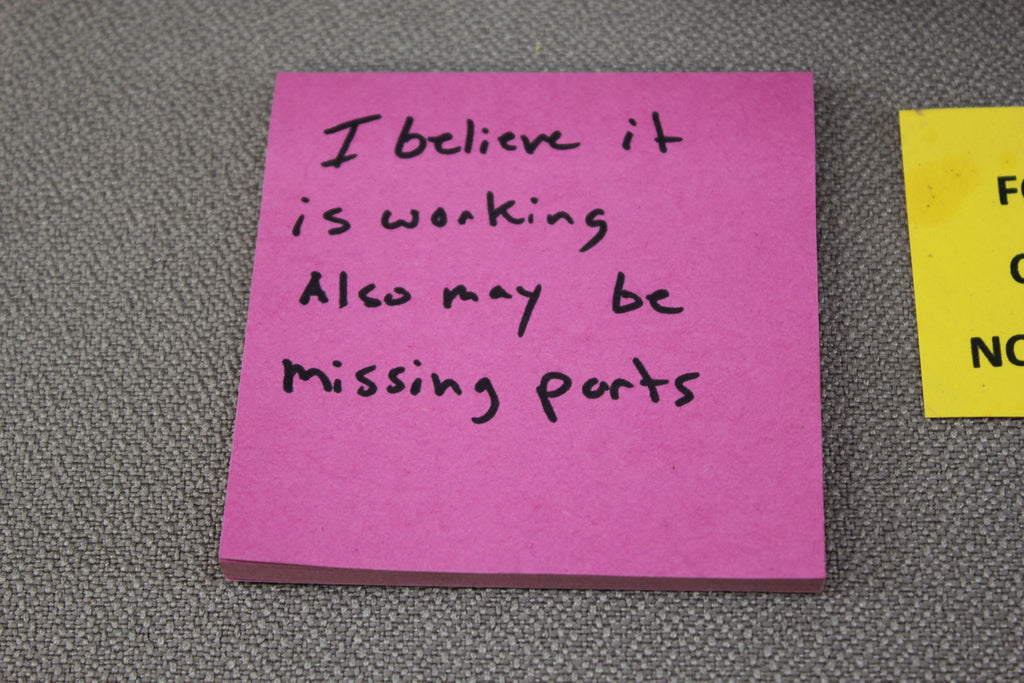 I believe it
is working
Also may be
missing parts